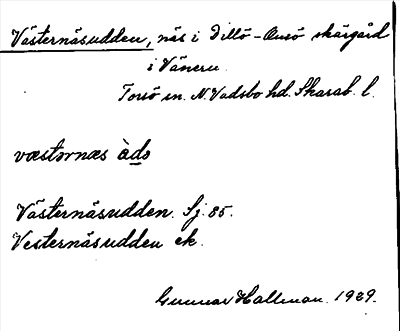 Västernäsudden, näs i Dillö-Onsö skärgård
i Vänern.
Torsö sn. N. Vadsbo hd. Skarab. l.
væstərnæs àdə
Västernäsudden. Sj. 85.
Vesternäsudden ek.
Gunnar Hallman. 1929.